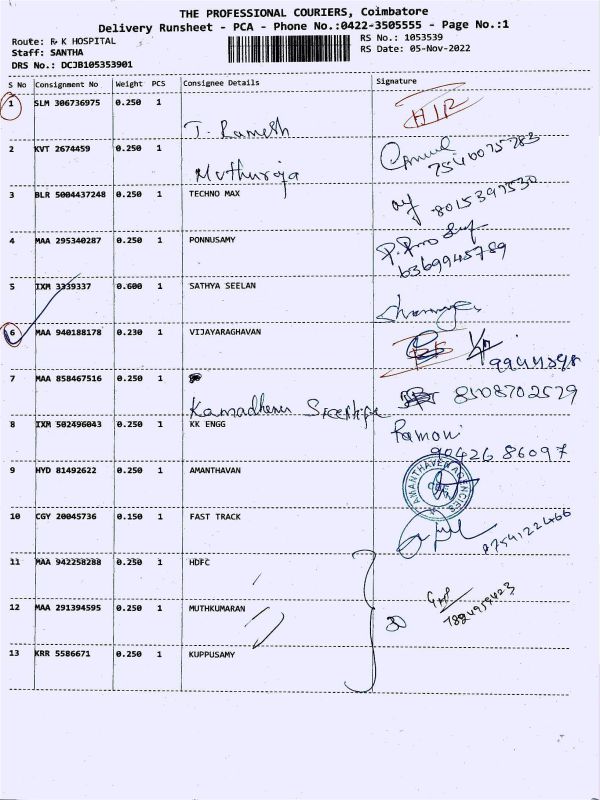 THE PROFESSIONAL COURIERS, Coimbatore
Delivery Runsheet - PCA - Phone No.:0422-3505555 - Page No.:1
Route: R K HOSPITAL
RS No.: 1053539
Staff: SANTHA
RS Date: 05-Nov-2022
DRS No.: DCJB105353901
S No Consignment No Weight PCS Consignee Details Signature
1 SLM 306736975 0.250 1 T. Ramesh
2 KVT 2674459 0.250 1 Muthuroja 7540075783
3 BLR 5004437248 0.250 1 TECHNO MAX 8015397530
4 MAA 295340287 0.250 1 PONNUSAMY 6369945789
5 IXM 3339337 0.600 1 SATHYA SEELAN
6 MAA 940188178 0.230 1 VIJAYARAGHAVAN
7 MAA 858467516 0.250 1 Kamadhenu 8508702579
8 IXM 502496043 0.250 1 KK ENGG Ramani 90426 86097
9 HYD 81492622 0.250 1 AMANTHAVAN AMANTHAVEN AGENCIES
10 CGY 20045736 0.150 1 FAST TRACK
11 MAA 942258288 0.250 1 HDFC
12 MAA 291394595 0.250 1 MUTHKUMARAN
13 KRR 5586671 0.250 1 KUPPUSAMY